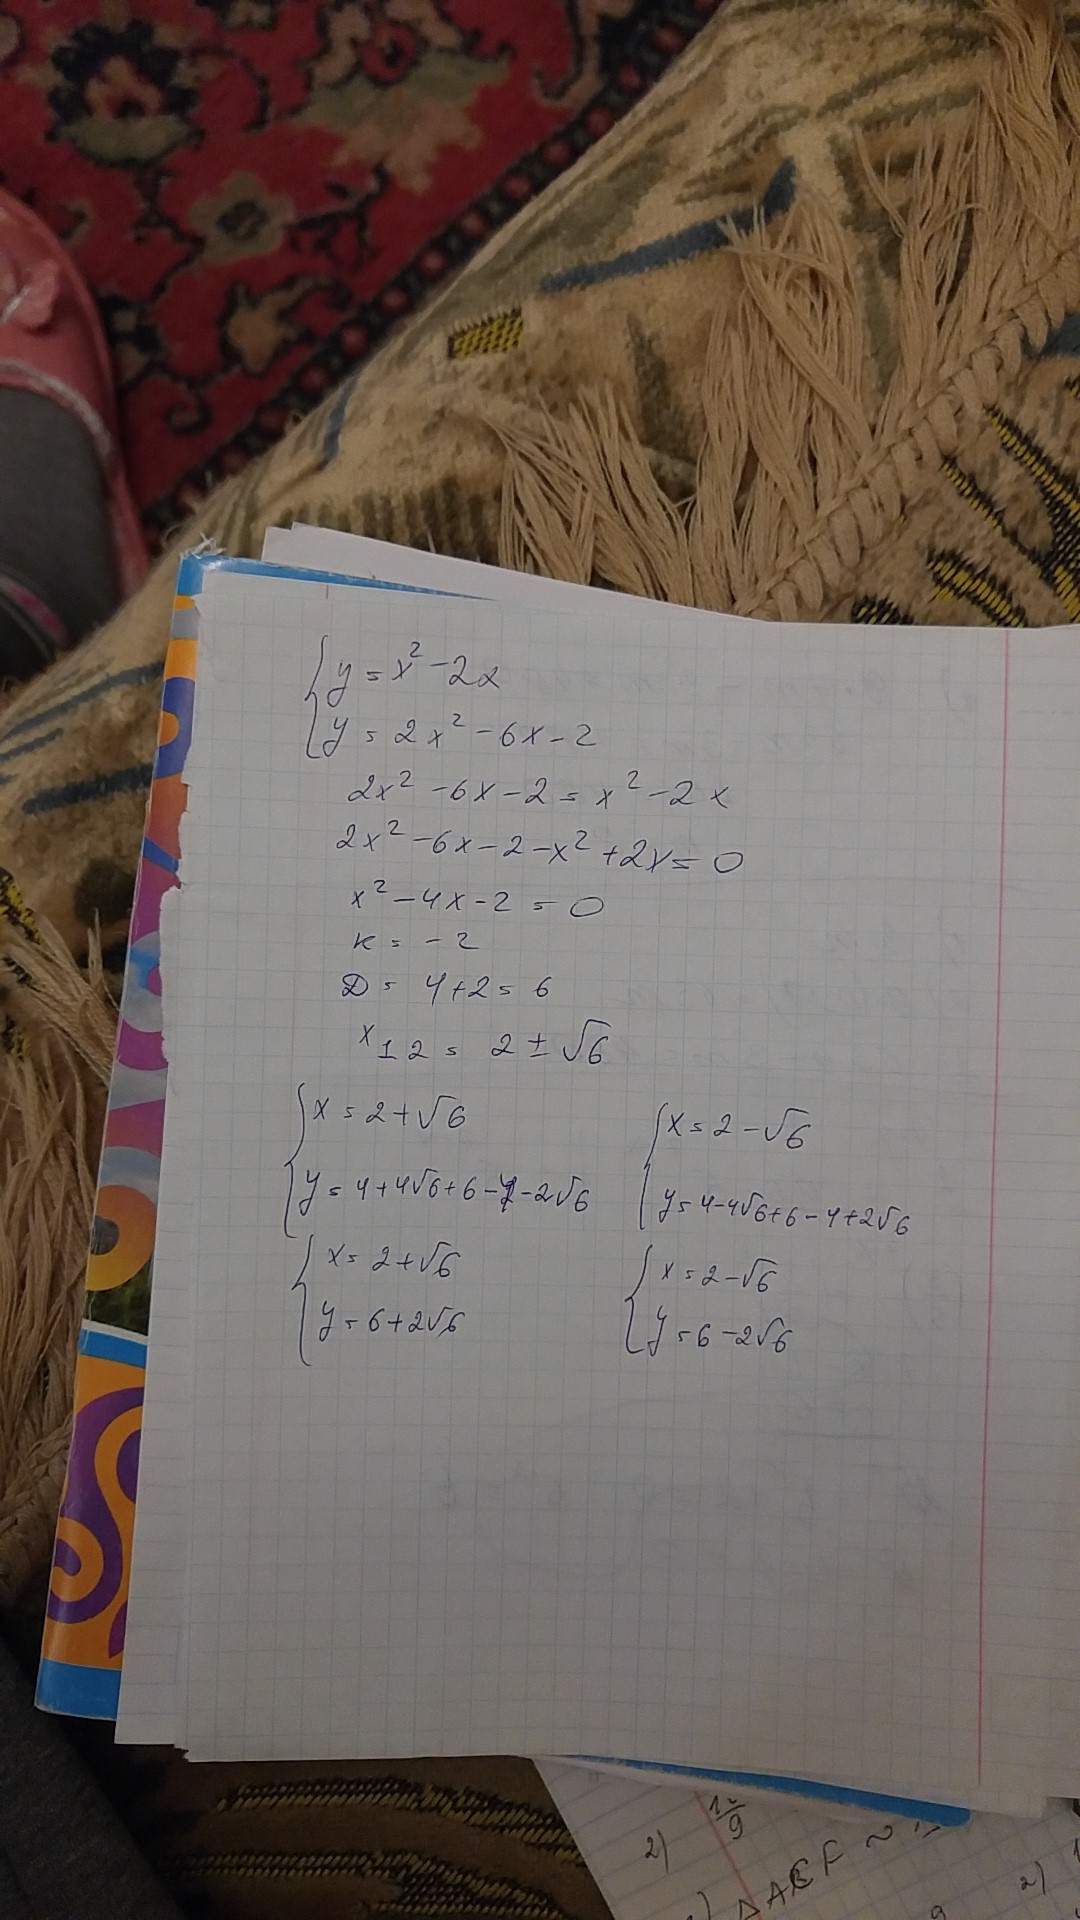 y = x² - 2x
y = 2x² - 6x - 2
2x² - 6x - 2 = x² - 2x
2x² - 6x - 2 - x² + 2x = 0
x² - 4x - 2 = 0
к = - 2
D = 4 + 2 = 6
x 1 2 = 2 ± √6
x = 2 + √6
y = 4 + 4√6 + 6 - 4 - 2√6
x = 2 + √6
y = 6 + 2√6
x = 2 - √6
y = 4 - 4√6 + 6 - 4 + 2√6
x = 2 - √6
y = 6 - 2√6
2)
9
2)